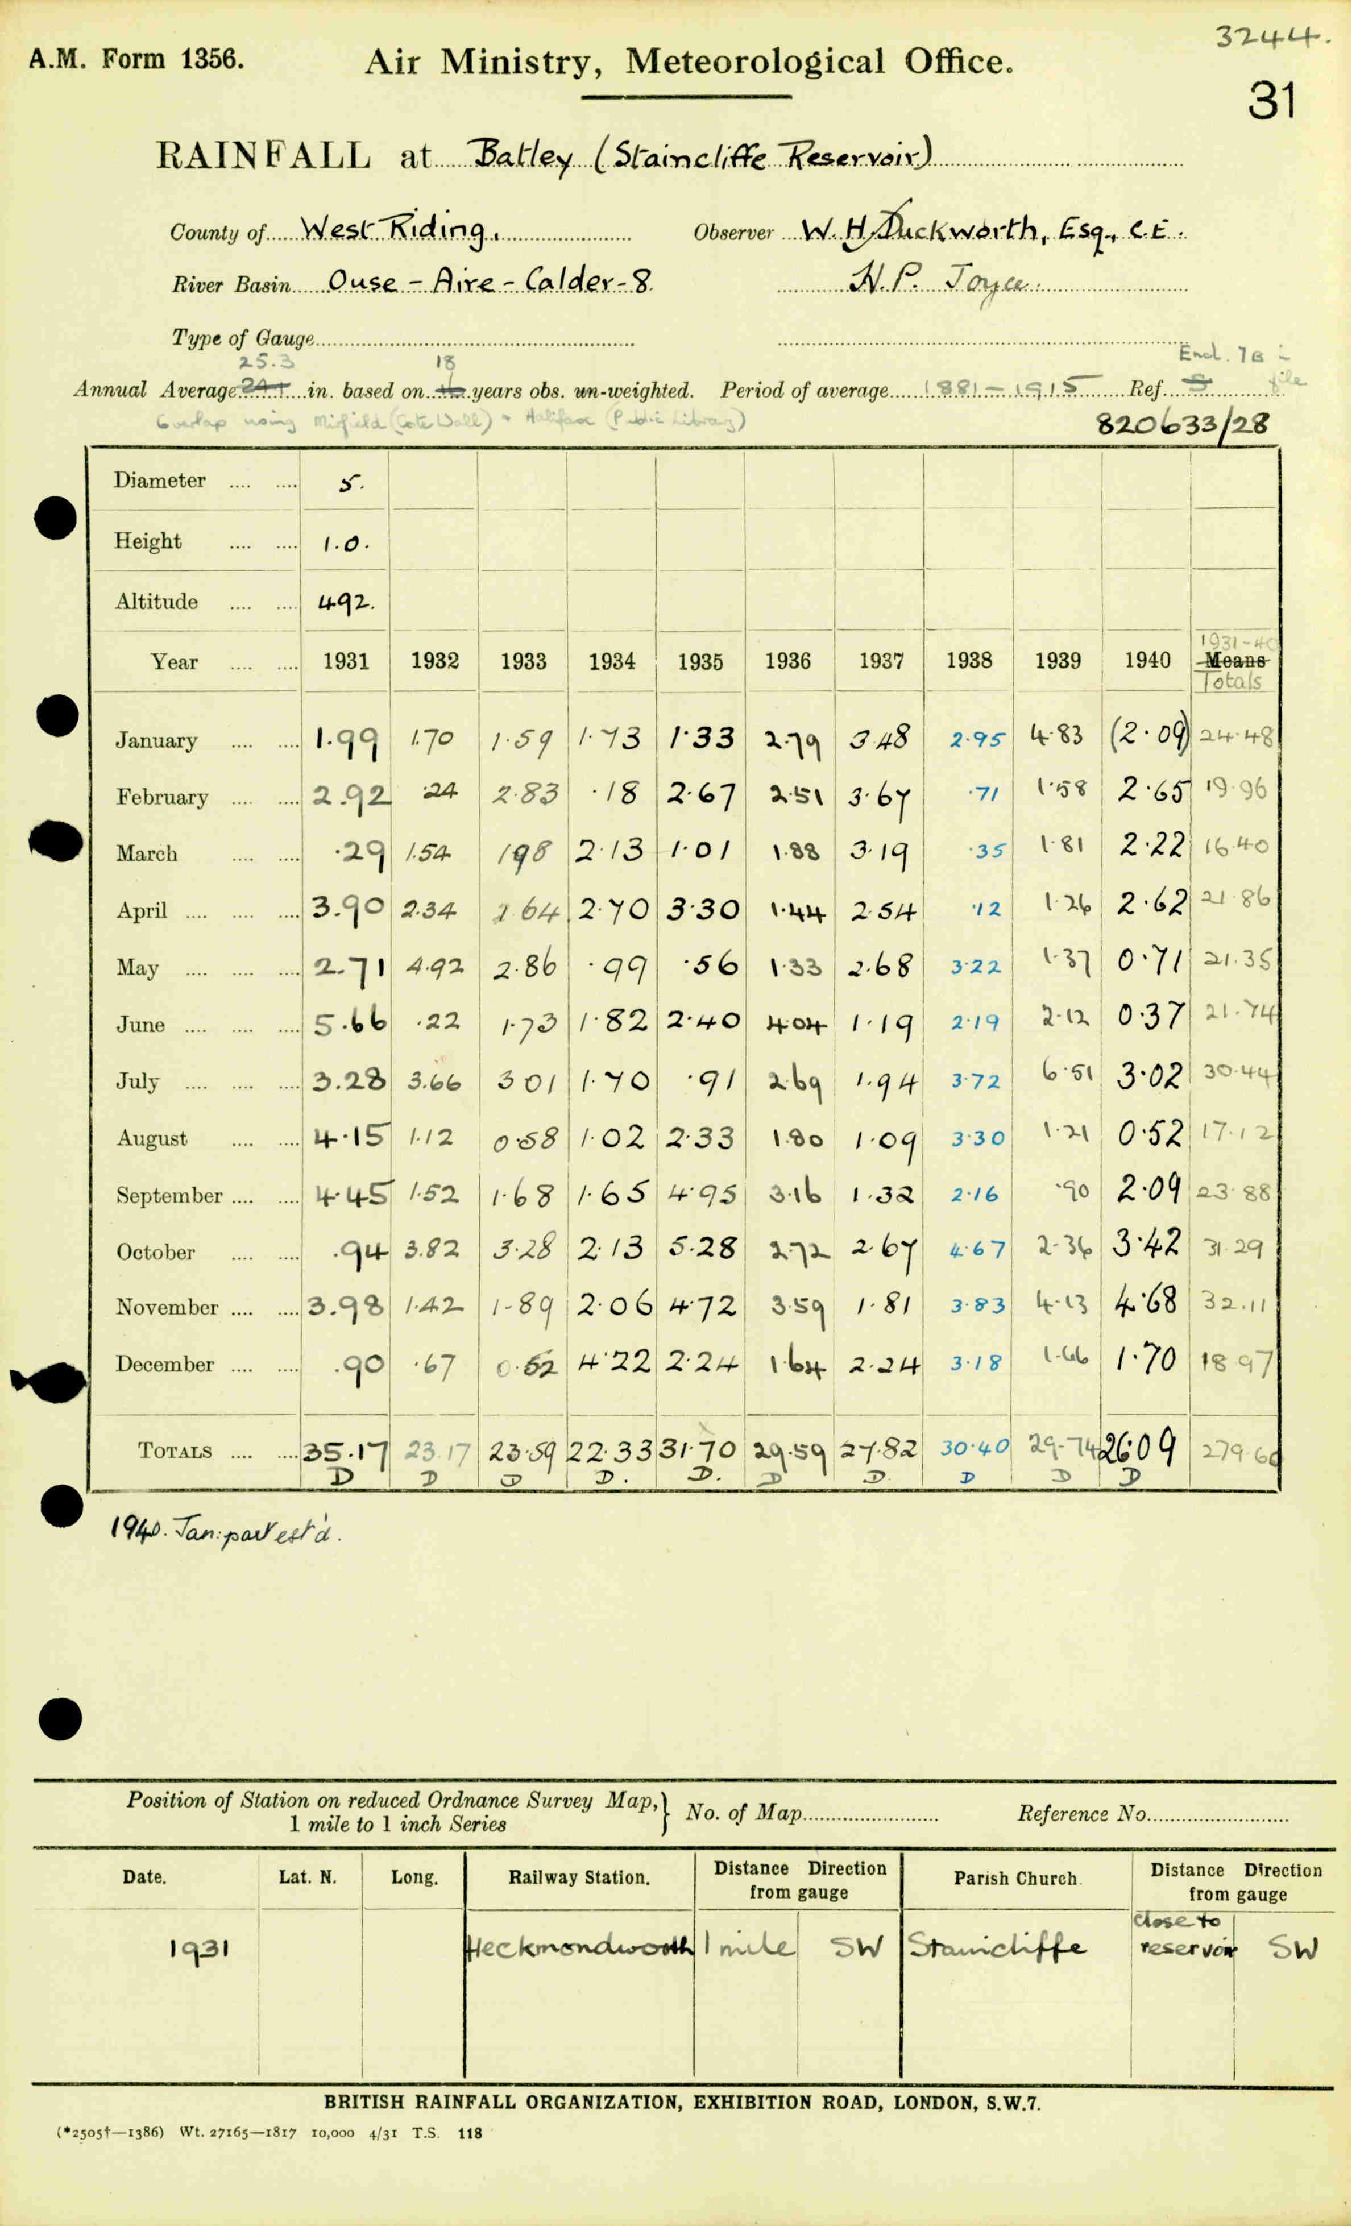 3244.
A.M. Form 1356. Air Ministry, Meteorological Office.
31
RAINFALL at Batley (Staincliffe Reservoir)
County of West Riding. Observer W. H. Duckworth, Esq., C.E.
River Basin Ouse - Aire - Calder - 8. H. P. Joyce.
Type of Gauge
25.3 18 Encl. 7B in file
Annual Average in. based on years obs. un-weighted. Period of average 1881 - 1915 Ref. 5
Overlap using Mirfield (Cote Wall) + Halifax (Public Library) 820633/28
Diameter 5.
Height 1.0.
Altitude 492.
Year 1931 1932 1933 1934 1935 1936 1937 1938 1939 1940 1931-40 Means Totals
January 1.99 1.70 1.59 1.73 1.33 2.79 3.48 2.95 4.83 (2.09) 24.48
February 2.92 .24 2.83 .18 2.67 2.51 3.67 .71 1.58 2.65 19.96
March .29 1.54 1.98 2.13 1.01 1.88 3.19 .35 1.81 2.22 16.40
April 3.90 2.34 1.64 2.70 3.30 1.44 2.54 .12 1.26 2.62 21.86
May 2.71 4.92 2.86 .99 .56 1.33 2.68 3.22 1.37 0.71 21.35
June 5.66 .22 1.73 1.82 2.40 4.04 1.19 2.19 2.12 0.37 21.74
July 3.28 3.66 3.01 1.70 .91 2.69 1.94 3.72 6.51 3.02 30.44
August 4.15 1.12 0.58 1.02 2.33 1.80 1.09 3.30 1.21 0.52 17.12
September 4.45 1.52 1.68 1.65 4.95 3.16 1.32 2.16 .90 2.09 23.88
October .94 3.82 3.28 2.13 5.28 2.72 2.67 4.67 2.36 3.42 31.29
November 3.98 1.42 1.89 2.06 4.72 3.59 1.81 3.83 4.13 4.68 32.11
December .90 .67 0.52 4.22 2.24 1.64 2.24 3.18 1.66 1.70 18.97
TOTALS 35.17 23.17 23.59 22.33 31.70 29.59 27.82 30.40 29.74 26.09 279.60
D D D D. D. D D D D D
1940. Jan: part est'd.
Position of Station on reduced Ordnance Survey Map, 1 mile to 1 inch Series } No. of Map Reference No.
Date. Lat. N. Long. Railway Station. Distance Direction from gauge Parish Church Distance Direction from gauge
1931 Heckmondworth 1 mile SW Staincliffe close to reservoir SW
BRITISH RAINFALL ORGANIZATION, EXHIBITION ROAD, LONDON, S.W.7.
(*2505†—1386) Wt. 27165—1817 10,000 4/31 T.S. 118